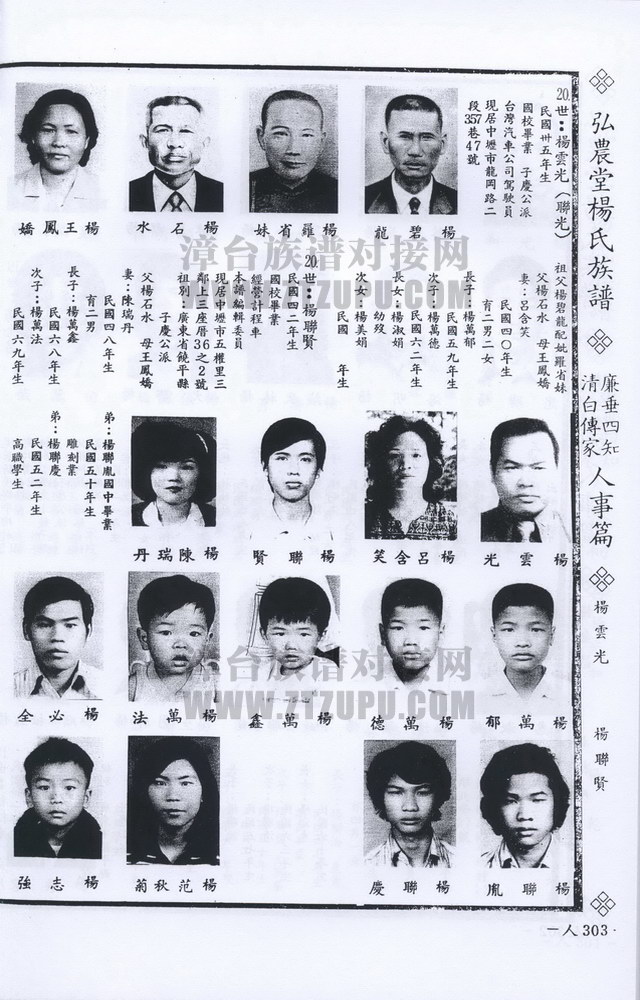 弘農堂楊氏族譜
廉垂四知
清白傳家
人事篇
楊雲光
楊聯賢
一人303·
20.世：楊雲光（聯光）
民國卅五年生
國校畢業 子慶公派
台灣汽車公司駕駛員
現居中壢市龍岡路二
段357巷47號
楊碧龍
楊羅省妹
楊石水
楊王鳳嬌
祖父楊碧龍配妣羅省妹
父楊石水 母王鳳嬌
妻：呂含笑
民國四〇年生
育二男二女
長子：楊萬郁
民國五九年生
次子：楊萬德
民國六二年生
長女：楊淑娟
幼歿
次女：楊美娟
民國 年生
20.世：楊聯賢
民國四二年生
國校畢業
經營計程車
本譜編輯委員
現居中壢市五權里三
鄰上三座厝36之2號
祖別：廣東省饒平縣
子慶公派
父楊石水 母王鳳嬌
妻：陳瑞丹
民國四八年生
育二男
長子：楊萬鑫
民國六八年生
次子：楊萬法
民國六九年生
楊雲光
楊呂含笑
楊聯賢
楊陳瑞丹
弟：楊聯胤國中畢業
民國五十年生
雕刻業
弟：楊聯慶
民國五二年生
高職學生
楊萬郁
楊萬德
楊萬鑫
楊萬法
楊必全
楊聯胤
楊聯慶
楊范秋菊
楊志強
漳台族谱对接网
WWW.ZTZUPU.COM
漳台族谱对接网
WWW.ZTZUPU.COM